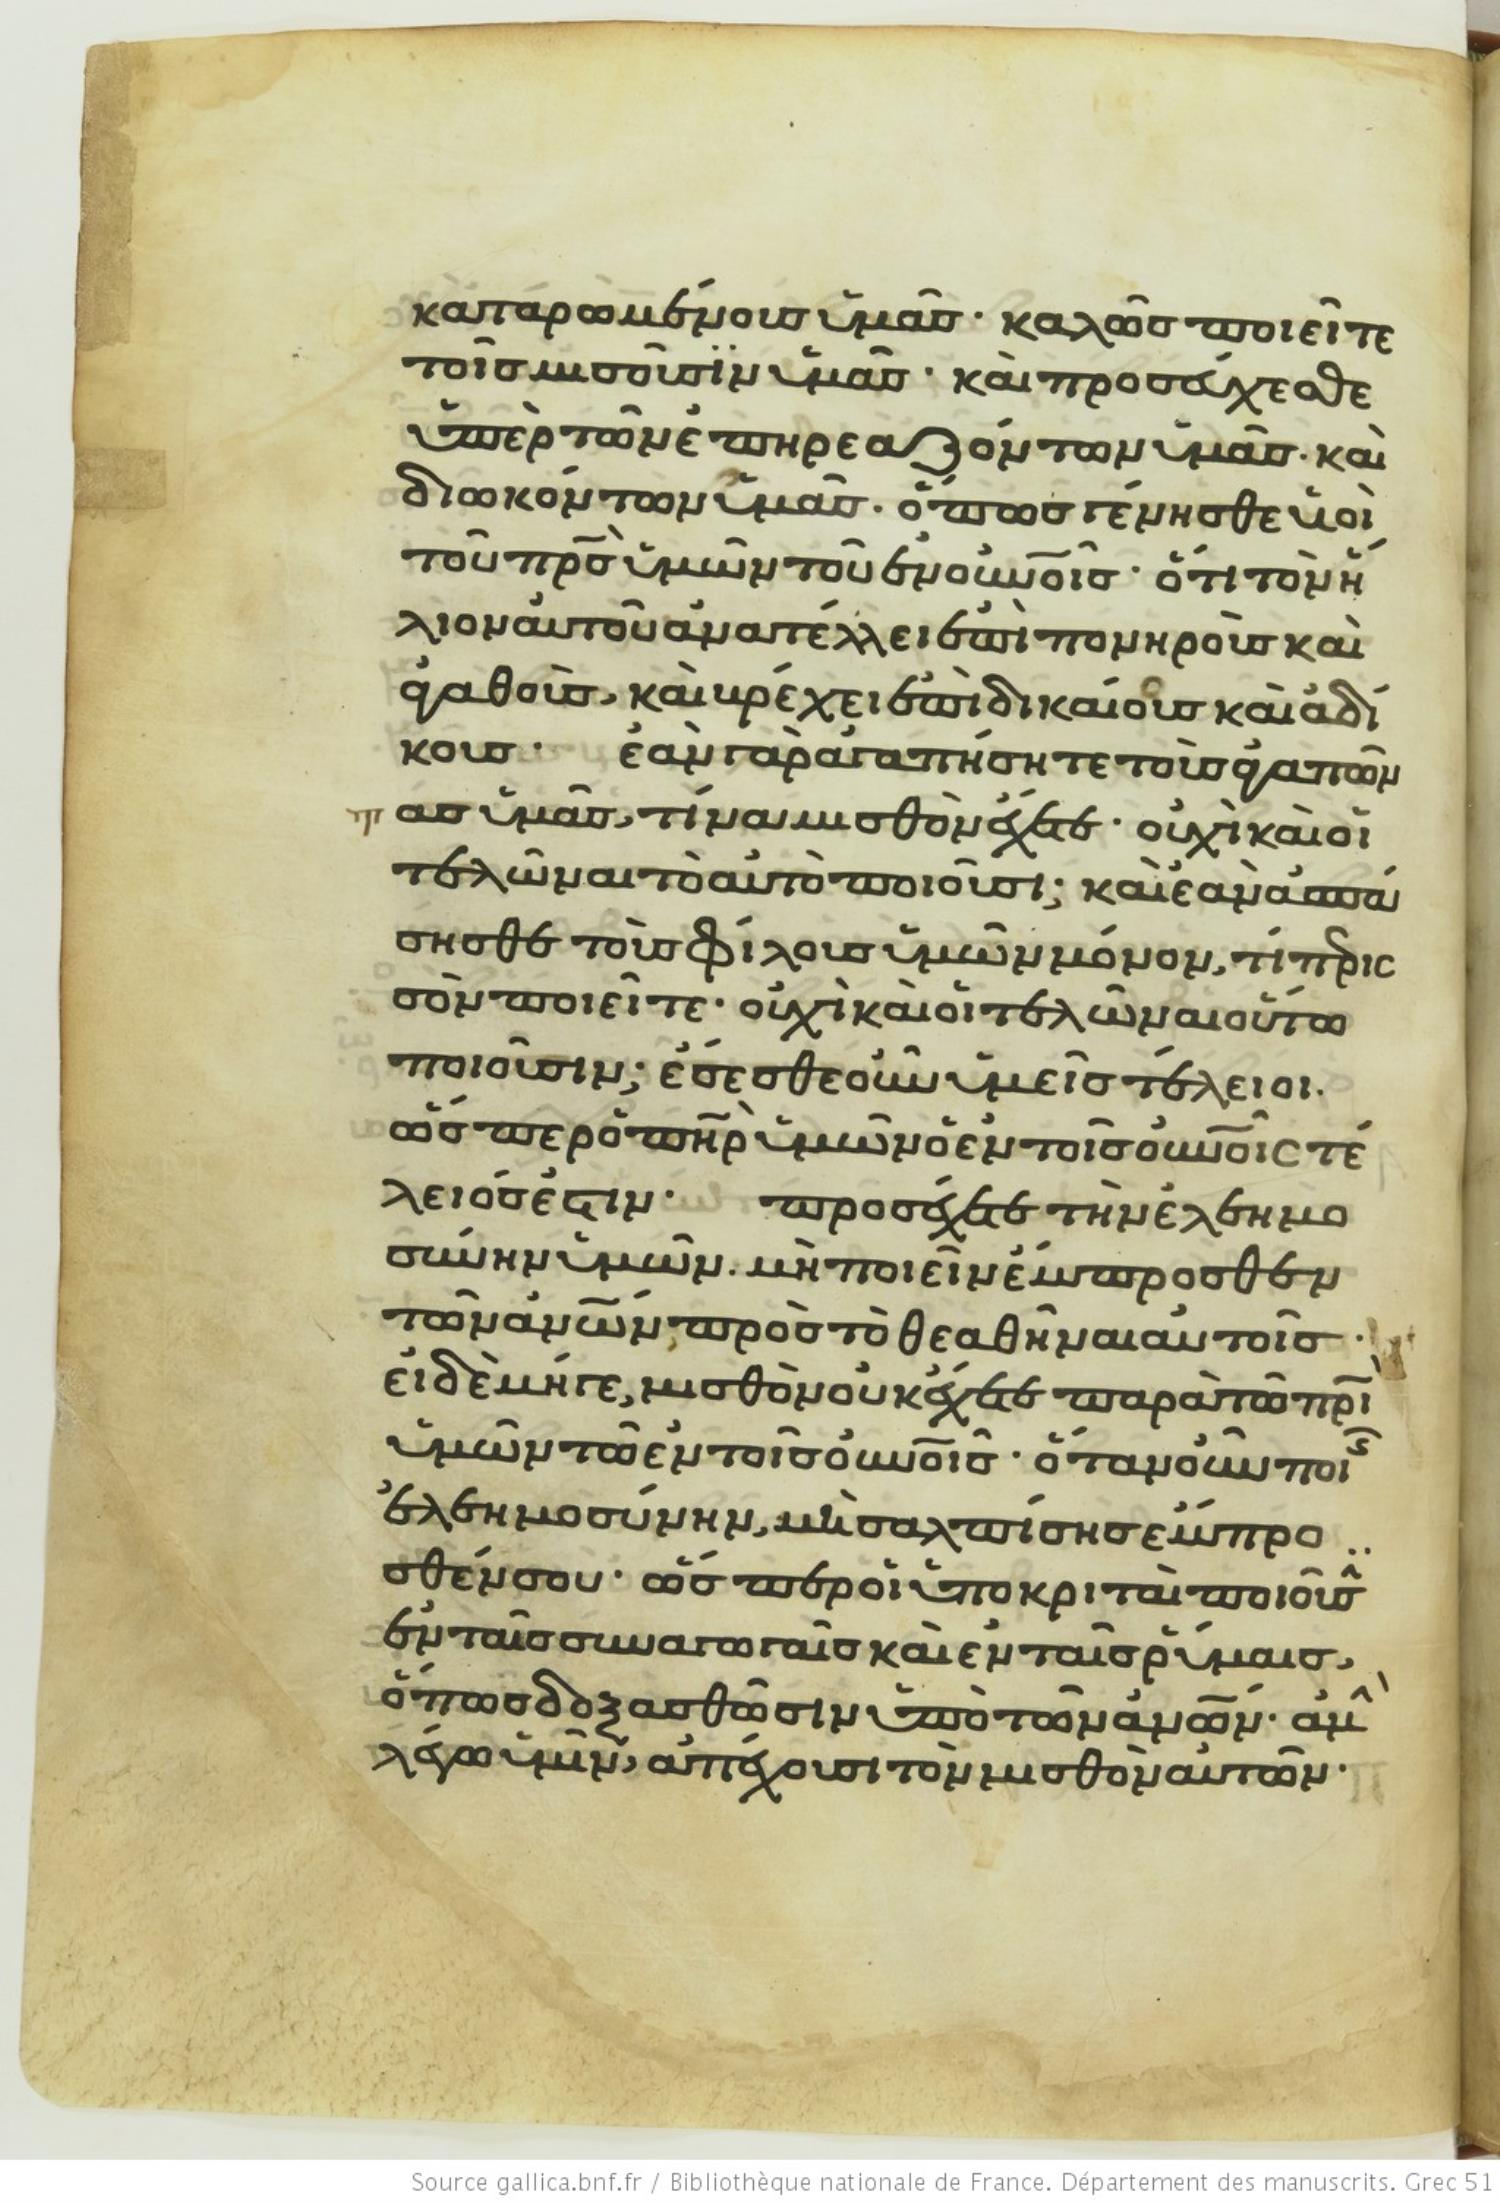 καταρωμένους ὑμᾶς· καλῶς ποιεῖτε
τοῖς μισοῦσϊν ὑμᾶς· καὶ προσεύχεσθε
ὑπὲρ τῶν ἐπηρεαζόντων ὑμᾶς· καὶ
διωκόντων ὑμᾶς. ὅπως γένησθε υἱοὶ
τοῦ πρ̅σ̅ ὑμῶν τοῦ ἐν οὐν̅οῖς· ὅτι τὸν ἥ
λιον αὐτοῦ ἀνατέλλει ἐπὶ πονηροὺς καὶ
ἀγαθοὺς, καὶ βρέχει ἐπὶ δικαίους καὶ ἀδί
κους· ἐὰν γὰρ ἀγαπήσητε τοὺς ἀγαπῶν
τας ὑμᾶς, τίνα μισθὸν ἔχετε· οὐχὶ καὶ οἱ
τελῶναι τὸ αὐτὸ ποιοῦσι; καὶ ἐὰν ἀσπά
σησθε τοὺς φίλους ὑμῶν μόνον, τί περισ
σὸν ποιεῖτε· οὐχὶ καὶ οἱ τελῶναι οὕτω
ποιοῦσιν; ἔσεσθε οὖν ὑμεῖς τέλειοι.
ὥσπερ ὁ πη̅ρ ὑμῶν ὁ ἐν τοῖς οὐν̅οῖς τέ
λειός ἐστιν· προσέχετε τὴν ἐλεημο
σύνην ὑμῶν. μὴ ποιεῖν ἔμπροσθεν
τῶν ἀν̅ων, πρὸς τὸ θεαθῆναι αὐτοῖς·
εἰ δὲ μήγε, μισθὸν οὐκ ἔχετε παρὰ τῶ πρ̅ι
ὑμῶν τῶ ἐν τοῖς οὐν̅οῖς· ὅταν οὖν ποιῆς
ἐλεημοσύνην, μὴ σαλπίσης ἔμπρο
σθέν σου· ὥσπερ οἱ ὑποκριταὶ ποιοῦσιν
ἐν ταῖς συναγωγαῖς καὶ ἐν ταῖς ῥύμαις,
ὅπως δοξασθῶσιν ὑπὸ τῶν ἀν̅ων· ἀμὴν
λέγω ὑμῖν, ἀπέχουσι τὸν μισθὸν αὐτῶν·
Source gallica.bnf.fr / Bibliothèque nationale de France. Département des manuscrits. Grec 51